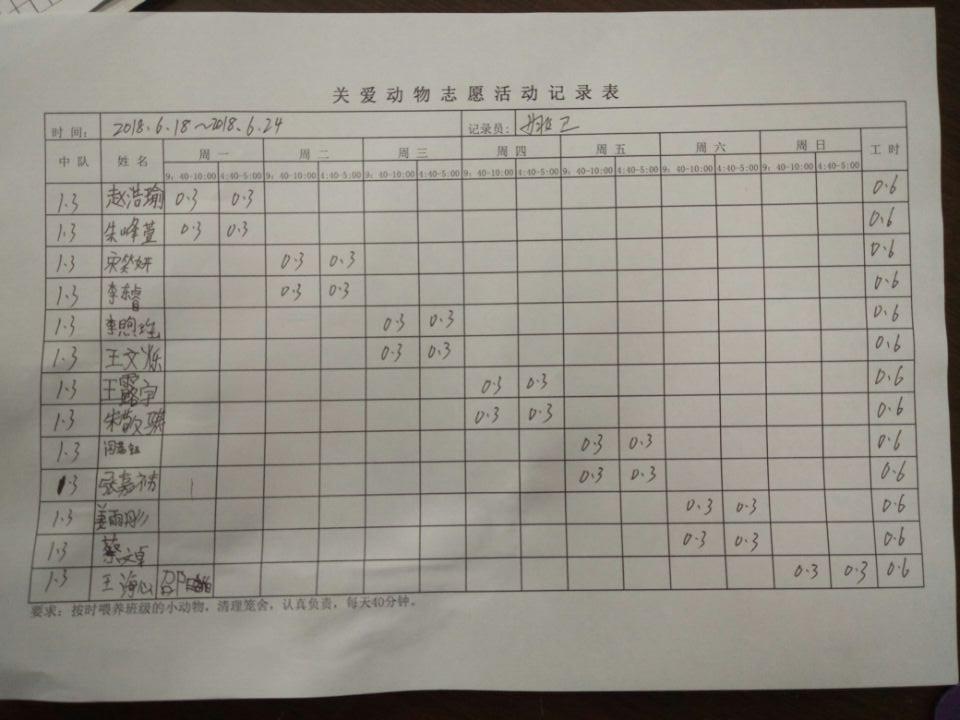 关爱动物志愿活动记录表
时间: 2018.6.18～2018.6.24 记录员:
中队 姓名 周一 周二 周三 周四 周五 周六 周日 工时
9:40-10:00 4:40-5:00 9:40-10:00 4:40-5:00 9:40-10:00 4:40-5:00 9:40-10:00 4:40-5:00 9:40-10:00 4:40-5:00 9:40-10:00 4:40-5:00 9:40-10:00 4:40-5:00
1.3 赵浩瑜 0.3 0.3 0.6
1.3 朱峰萱 0.3 0.3 0.6
1.3 宋笑妍 0.3 0.3 0.6
1.3 李东睿 0.3 0.3 0.6
1.3 李煦 0.3 0.3 0.6
1.3 王文烁 0.3 0.3 0.6
1.3 王露宇 0.3 0.3 0.6
1.3 朱敬骋 0.3 0.3 0.6
1.3 0.3 0.3 0.6
1.3 张嘉祐 0.3 0.3 0.6
1.3 姜雨彤 0.3 0.3 0.6
1.3 蔡文卓 0.3 0.3 0.6
1.3 王海心 0.3 0.3 0.6
要求：按时喂养班级的小动物，清理笼舍，认真负责，每天40分钟。